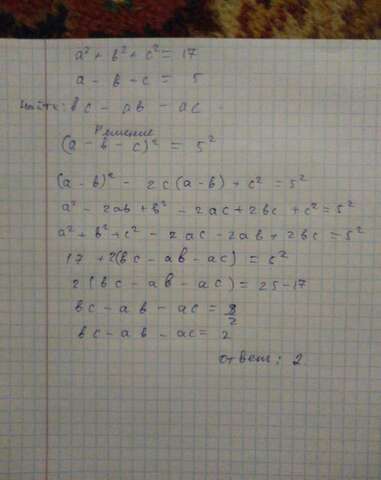 a² + b² + c² = 17
a - b - c = 5
Найти: bc - ab - ac
Решение
(a - b - c)² = 5²
(a - b)² - 2c(a - b) + c² = 5²
a² - 2ab + b² - 2ac + 2bc + c² = 5²
a² + b² + c² - 2ac - 2ab + 2bc = 5²
17 + 2(bc - ab - ac) = c²
2(bc - ab - ac) = 25 - 17
bc - ab - ac = 8/2
bc - ab - ac = 2
ответ: 2